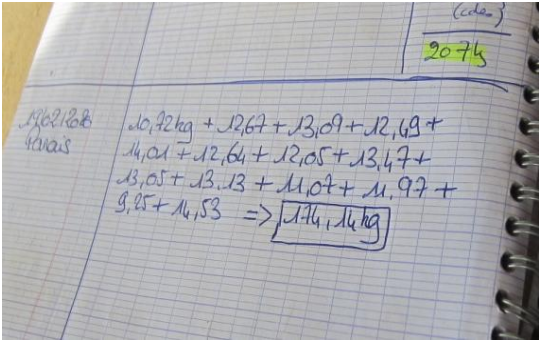 (cdes)
2074
10,72kg + 12,67 + 13,09 + 12,49 +
14,01 + 12,64 + 12,05 + 13,47 +
13,05 + 13.13 + 11,07 + 11.97 +
9,25 + 14,53 => 174,14kg